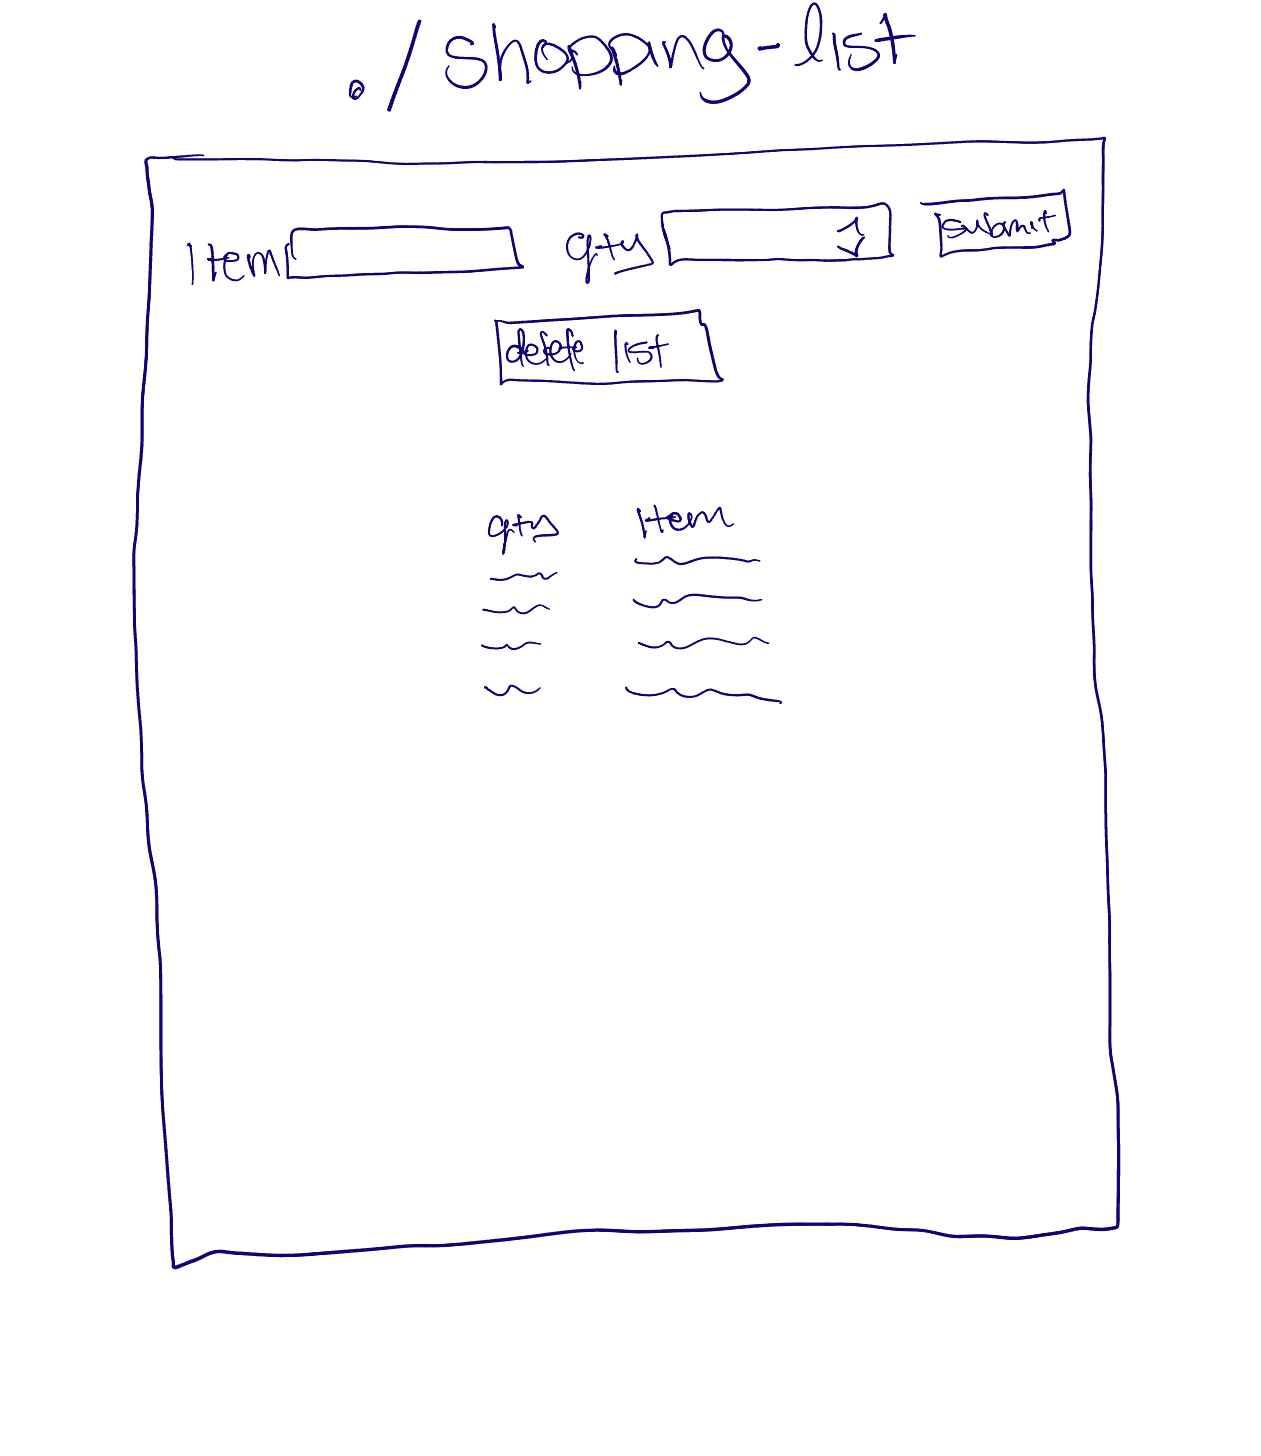 ./shopping-list
Item qty submit
delete list
qty Item